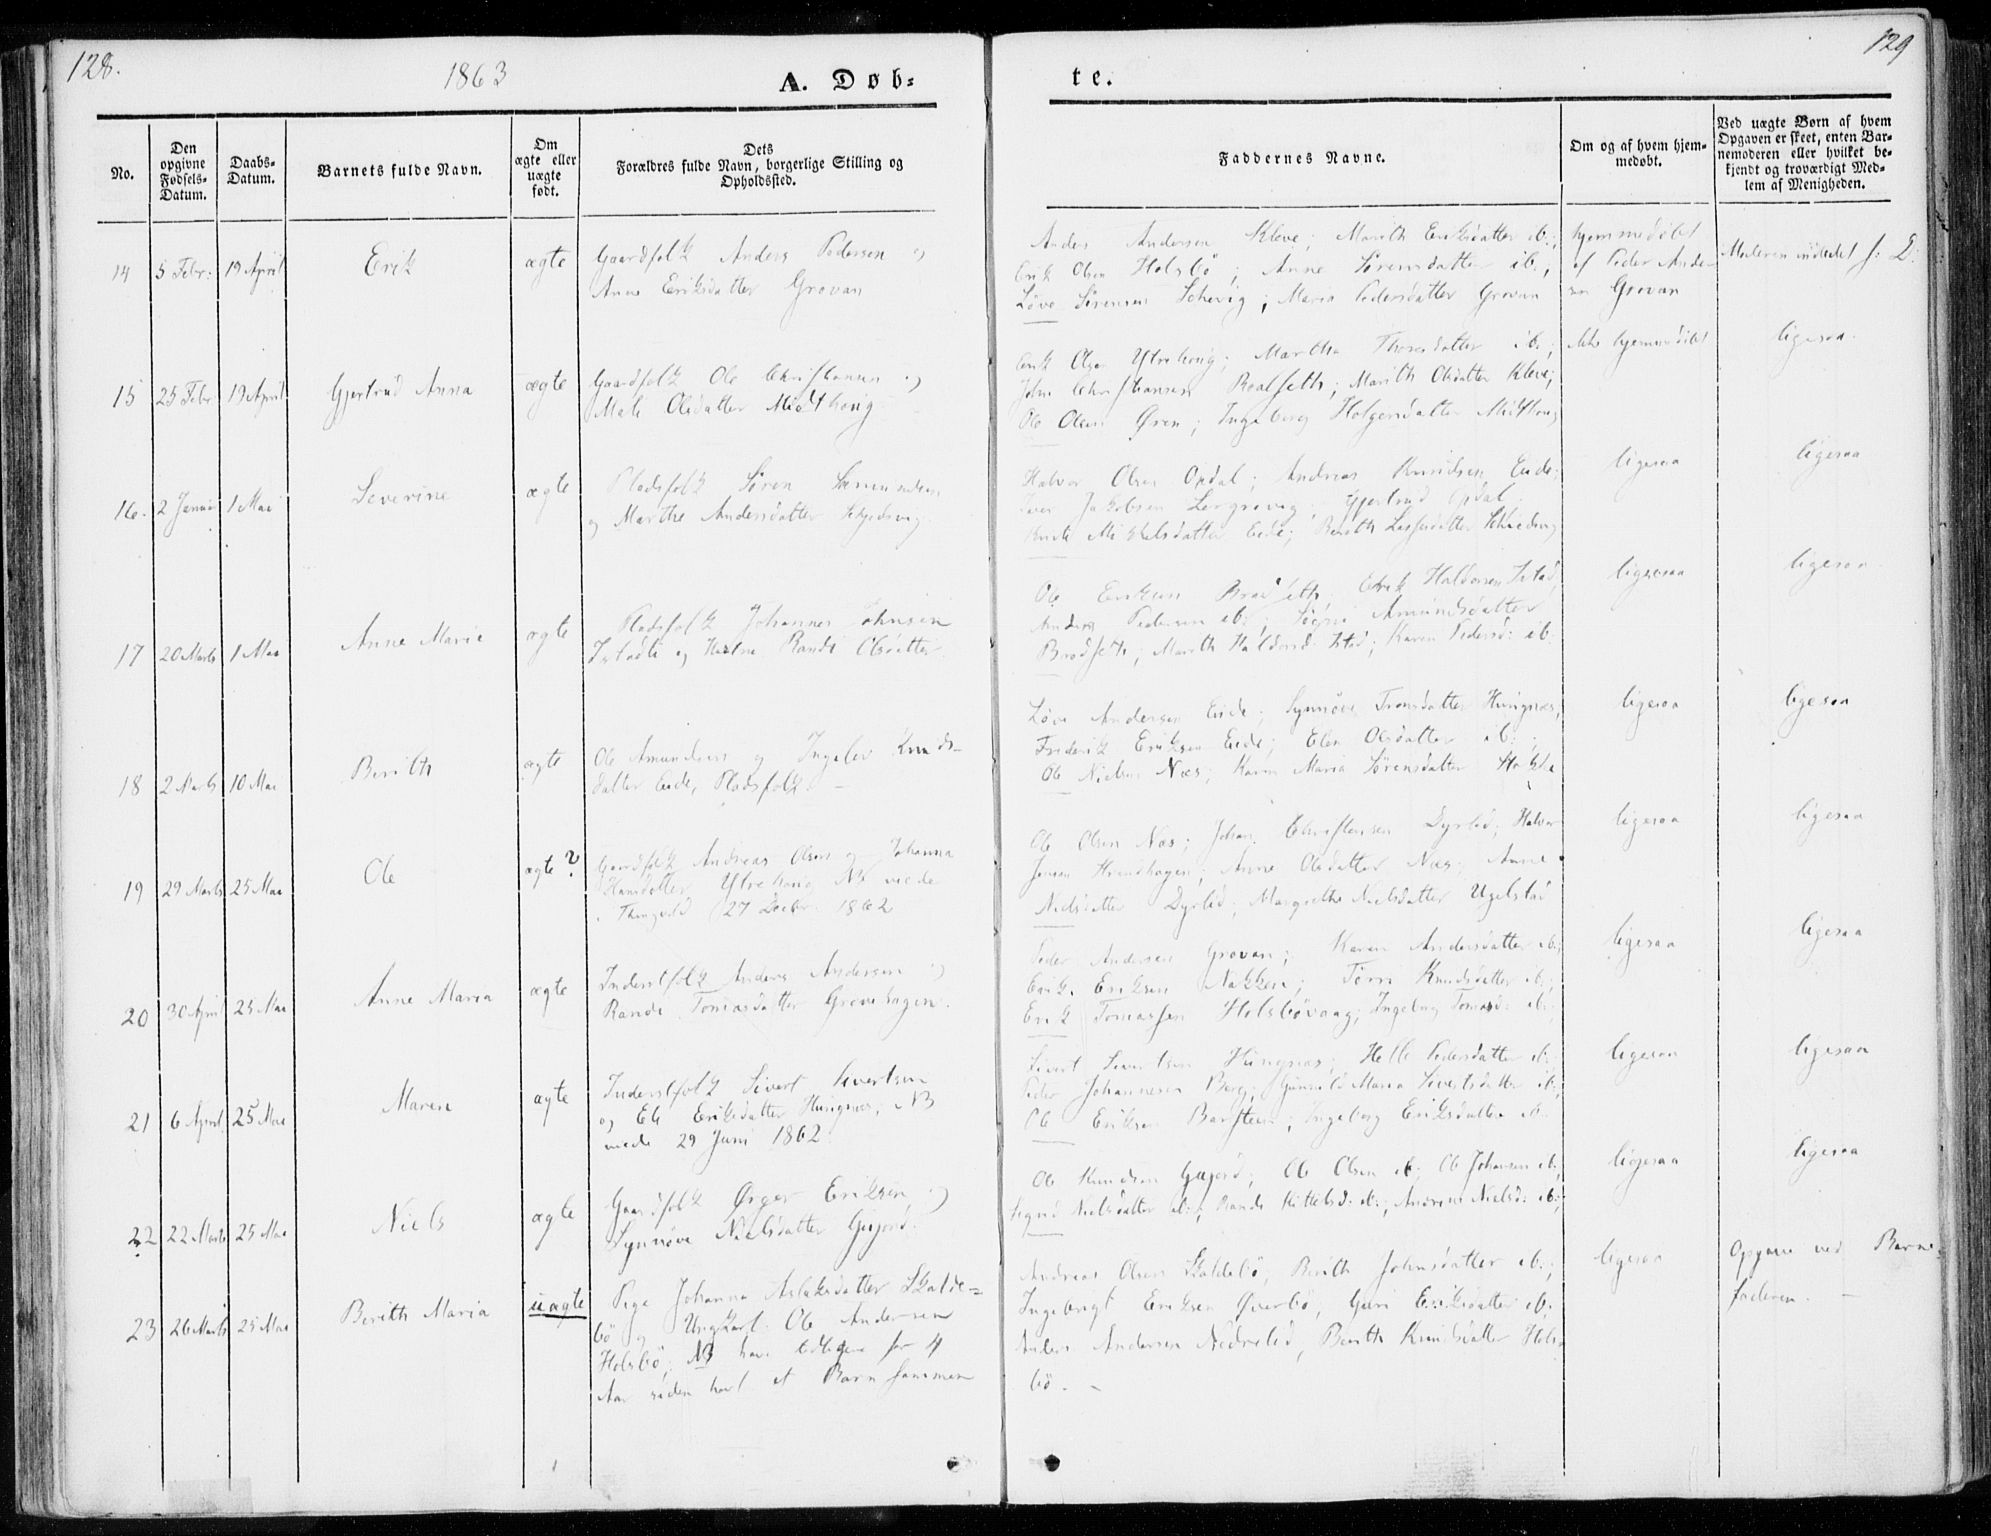 128.
1863
A. Døb=
te.
129
No.
Den opgivne Fødsels-Datum.
Daabs-Datum.
Barnets fulde Navn.
Om ægte eller uægte født.
Dets Forældres fulde Navn, borgerlige Stilling og Opholdssted.
Faddernes Navne.
Om og af hvem hjemmedøbt.
Ved uægte Børn af hvem Opgaven er skeet, enten Barnemoderen eller hvilket bekjendt og troværdigt Medlem af Menigheden.
14 5 Febr: 19 April Erik ægte
Gaardfolk Anders Pedersen og
Anne Eriksdatter Grovan
Anders Andersen Kleve; Marith Eriksdatter ib.;
Erik Olsen Holsbö; Anne Sörensdatter ib.;
Löve Sörensen; Maria Pedersdatter Grovan
hjemmedöbt
af Peder Ander
sen Grovan
Moderen indledet
15 25 Febr 19 April Gjertrud Anna ægte
Gaardfolk Ole Christiansen og
Mali Olsdatter Midthoug
Erik Olsen Ytrehoug; Martha Thoresdatter ib.;
John Christiansen Roalseth; Marith Olsdatter Kleve;
Ole Olsen Øren; Ingeborg Holgersdatter Midthoug
ikke hjemmedöbt
ligesaa.
16. 2 Januar 1 Mai Severine ægte
Pladsfolk Sören
og Marthe Andersdatter
Halvor Olsen Opdal; Andreas Knudsen Eide;
Iver Jakobsen Lergrovig; Gjertrud Opdal.
Mikkelsdatter Eide; Berith
ligesaa
ligesaa
17 20 Marts 1 Mai Anne Marie ægte
Pladsfolk Johannes Johnsen
og Hustru Randi Olsdatter.
Ole Eriksen Bradseth; Erik Haldorsen Istad;
Anders Pedersen ib.; Amundsdatter
Bradseth; Marith Haldorsd: Istad; Karen Pedersd: ib.
ligesaa
ligesaa.
18 2 Marts 10 Mai Berith ægte
Ole Amundsen og Ingelev Knuds-
datter Eide, Pladsfolk. –
Löve Andersen Eide; Synnöve Tronsdatter Hungnæs;
Frederik Eriksen Eide; Elen Olsdatter ib.;
Ole Nielsen Næs; Karen Maria Sörensdatter
ligesaa
ligesaa
19 29 Marts 25 Mai Ole ægte?
Gaardfolk Andreas Olsen og Johanna
Hansdatter Ytrehoug NB viede
i Thingvold 27 Decbr. 1862
Ole Olsen Næs; Johan Christensen Dyrlid; Halvor
Jensen; Anne Olsdatter Næs; Anne
Nielsdatter Dyrlid; Margrethe Nielsdatter Ugelstad
ligesaa
ligesaa
20 30 April 25 Mai Anne Maria ægte
Inderstfolk Anders Andersen og
Randi Tomasdatter Grovehagen.
Peder Andersen Grovan; Karen Andersdatter ib.;
Erik Eriksen Nakken; Knudsdatter ib.;
Erik Tomassen Holsbövaag; Ingeborg Tomasd: ib.
ligesaa
ligesaa
21 6 April 25 Mai Maren ægte
Inderstfolk Sivert Sivertsen
og Eli Eriksdatter Hungnæs; NB
viede 29 Juni 1862.
Sivert Sivertsen Hungnæs; Pedersdatter ib.;
Peder Johannesen Berg; Gunild Maria Sivertsdatter ib.;
Ole Eriksen; Ingeborg Eriksdatter ib.
ligesaa
ligesaa
22 22 Marts 25 Mai Niels ægte
Gaardfolk Ørger Eriksen og
Synnöve Nielsdatter Gujord.
Ole Knudsen Gujord; Ole Olsen ib.; Ole Johansen ib.;
Sigrid Nielsdatter ib.; Randi Kittelsd: ib.; Nielsd: ib.;
ligesaa
ligesaa
23 26 Marts 25 Mai Berith Maria uægte
Pige Johanna Aslaksdatter Skalde=
bö og Ungkarl Ole Andersen
Holsbö; NB have tidligere for 4
Aar siden havt et Barn sammen
Andreas Olsen Skaldebö; Berith Johnsdatter ib.;
Ingebrigt Eriksen Överbö; Guri Eriksdatter ib.;
Anders Andersen Nedrelid; Berith Knudsdatter Hols-
bö. –
ligesaa
Opgave ved Barne-
faderen. –